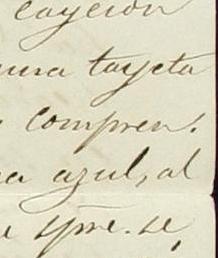 cayeron
una tarjeta
compren.
azul, al
spre. se